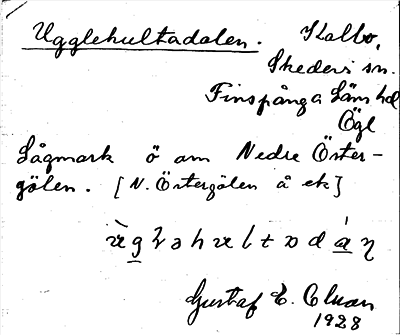 Ugglehultadalen. Kalbo,
Skedevi sn.
Finspånga Läns hd
Ögl
Lågmark ö om Nedre Öster-
gölen. [N. Östergölen å ek]
Gustaf E. Cluan
1928